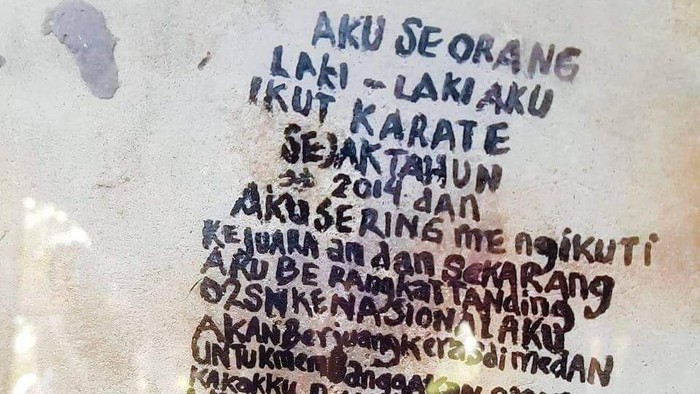 AKU SEORANG
LAKI - LAKI AKU
IKUT KARATE
SEJAK TAHUN
2014 dan
AKU SERING mengikuti
KEJUARA an dan SEKARANG
AKU BE RANgkat TANding
O2SN KE NASIONAL AKU
AKAN Berjuang kERAS di mEDAN
UNTUK mem BANggAKAN
KAKAKKU